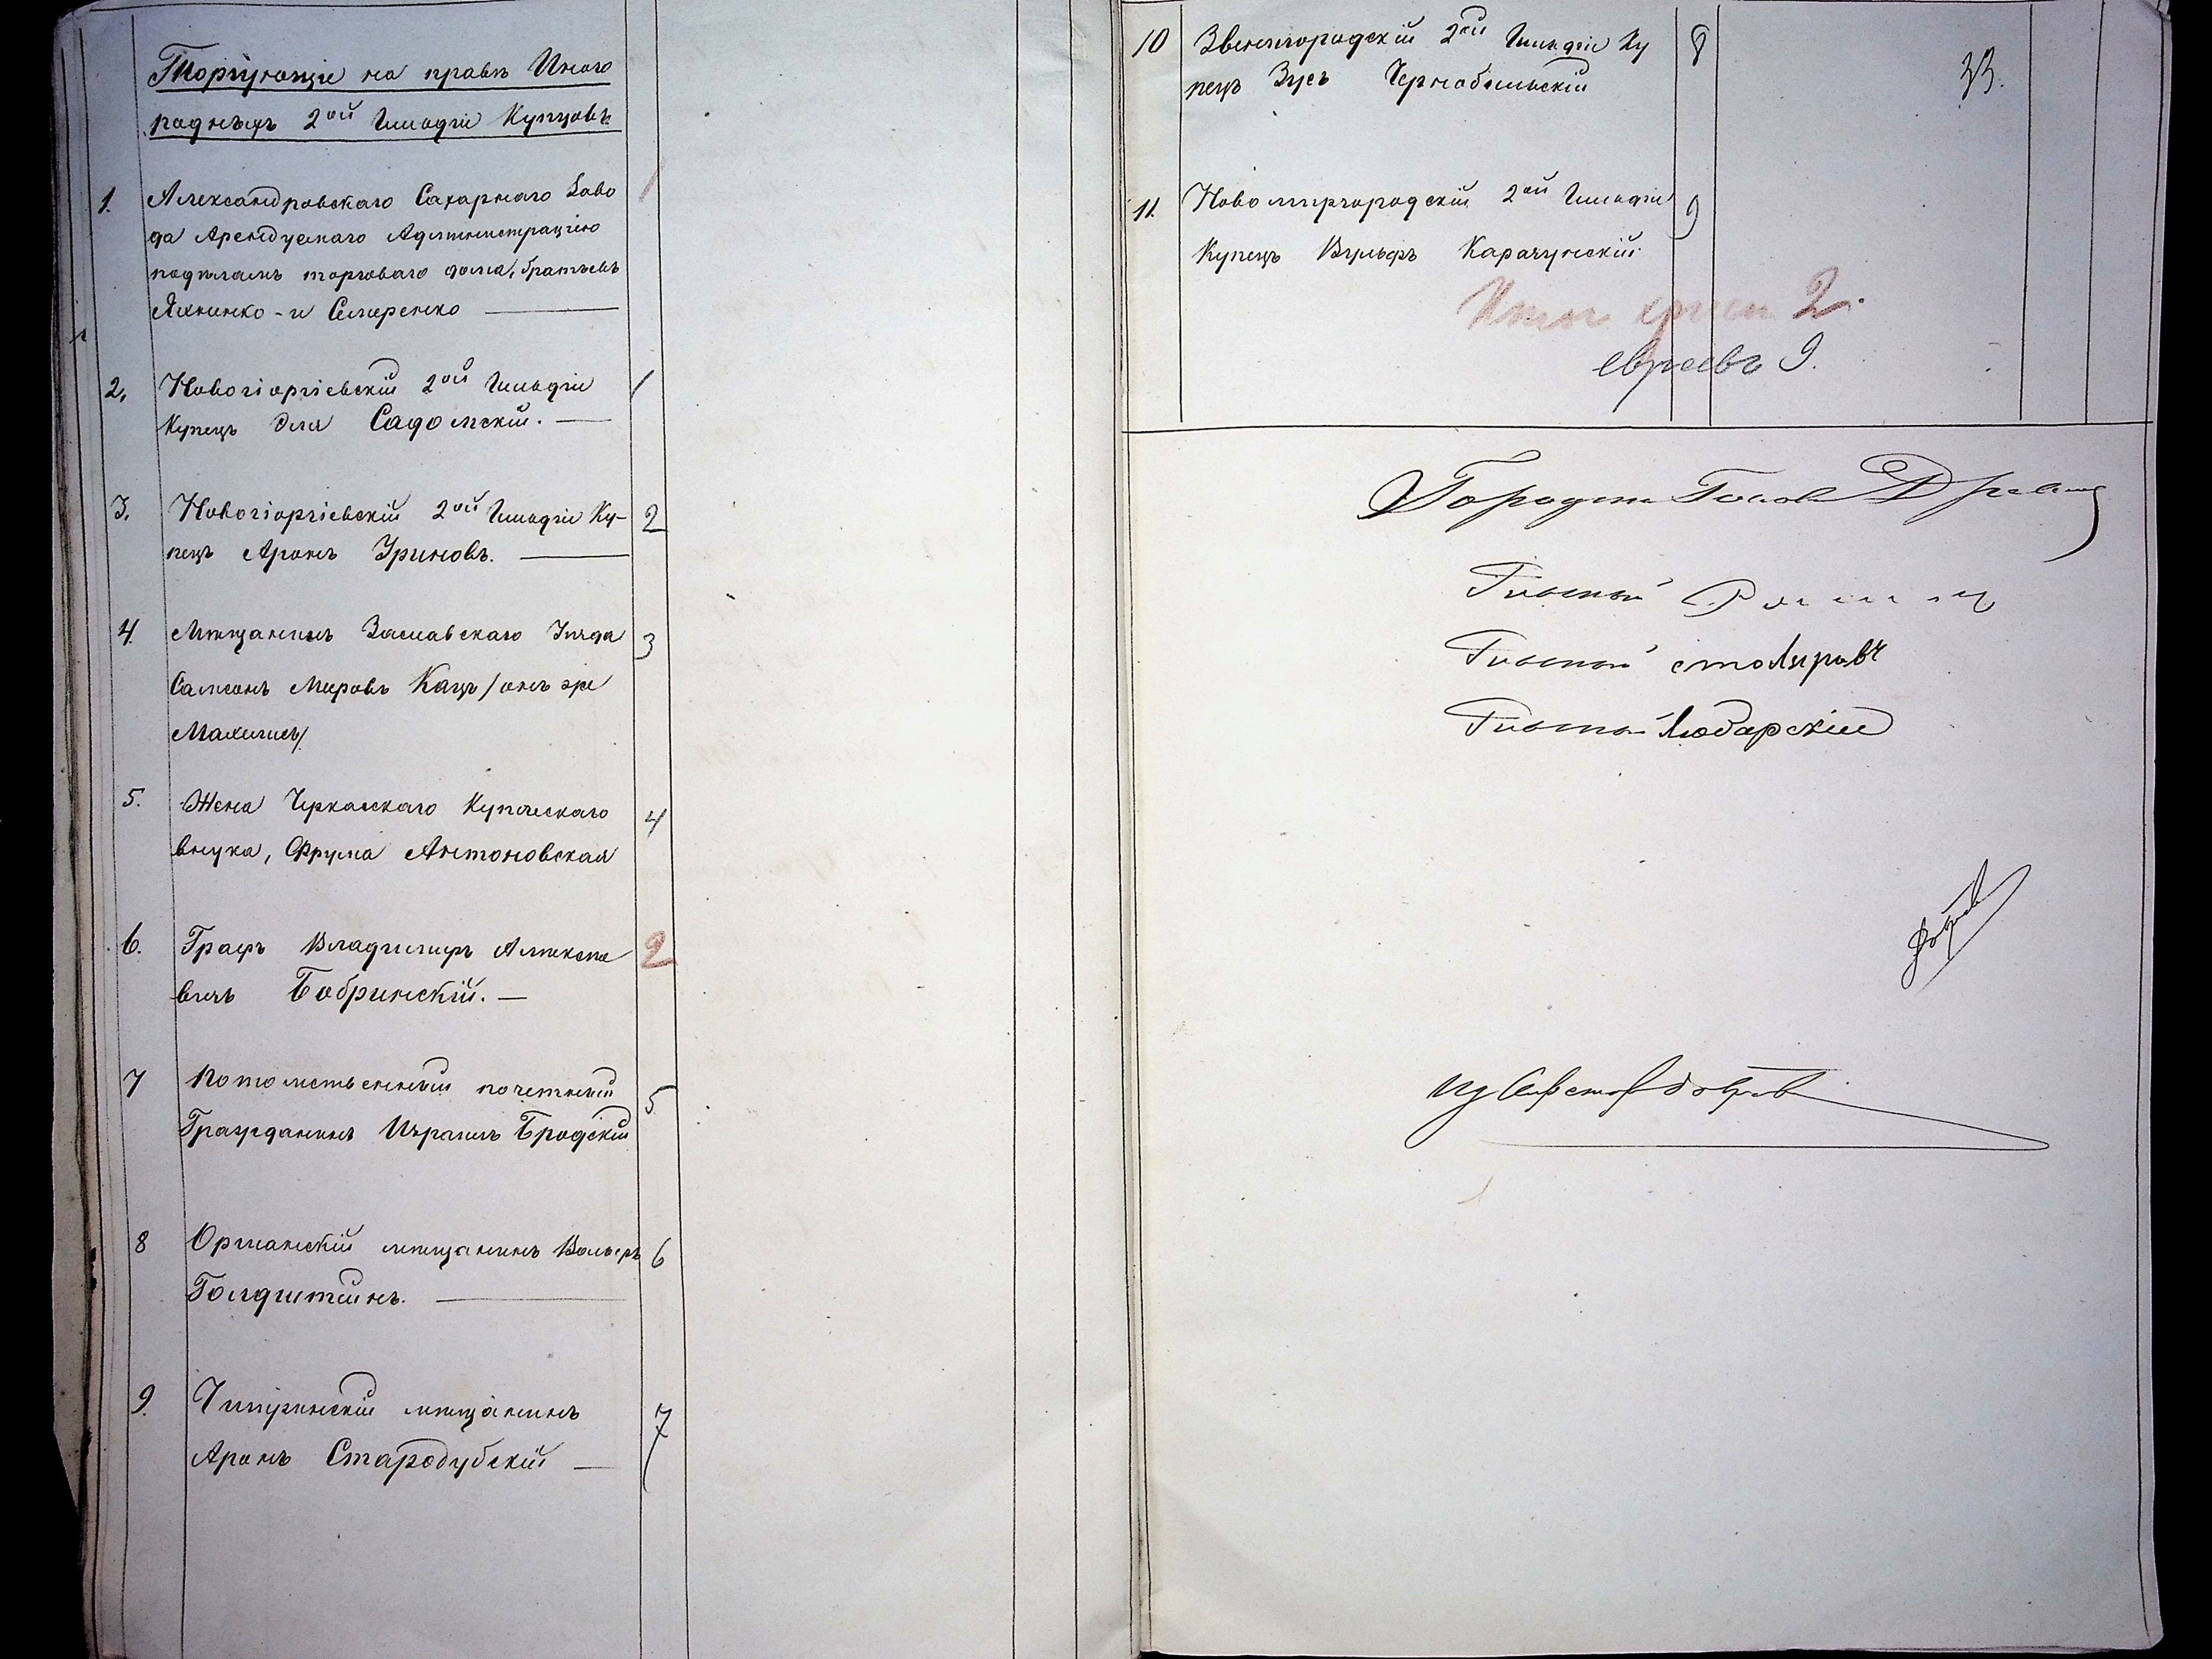 Торгующіе на правѣ Иного
роднѣхъ 2ой Гильдіи Купцовъ
1. Александровскаго Сахарнаго Заво
да Арендуемаго Администраціею
по дѣламъ торговаго дома, братьевъ
Яхненко - и Симиренко
1
2. Новогіоргіевскій 2ой Гильдіи
Купецъ Садомскій.
1
3. Новогіоргіевскій 2ой Гильдіи Ку-
пецъ Аронъ Уриновъ.
2
4. Мѣщанинъ Заславскаго Уѣзда
Самсонъ Мееровъ Кацъ / онъ же
3
5. Жена Черкасскаго Купеческаго
внука, Фрума Антоновская
4
6. Графъ Владимиръ Алексѣе
вичъ Бобринскій.
2
7 Потомственный почетный
Гражданинъ Израиль Бродскій
5
8 Оршанскій мѣщанинъ Вольфъ
Голдштейнъ.
6
9. Чигиринскій мѣщанинъ
Аронъ Стародубскій
7
10 Звенигородскій 2ой Гильдіи Ку
пецъ Зусъ Чернобыльскій
8
33.
11. Новомиргородскій 2ой Гильдіи
Купецъ Вульфъ Карачунскій
9
Итого христ 2.
евреевъ 9.
Городск Голова
Гласный
Гласный столяровъ
Гласный Любарскій